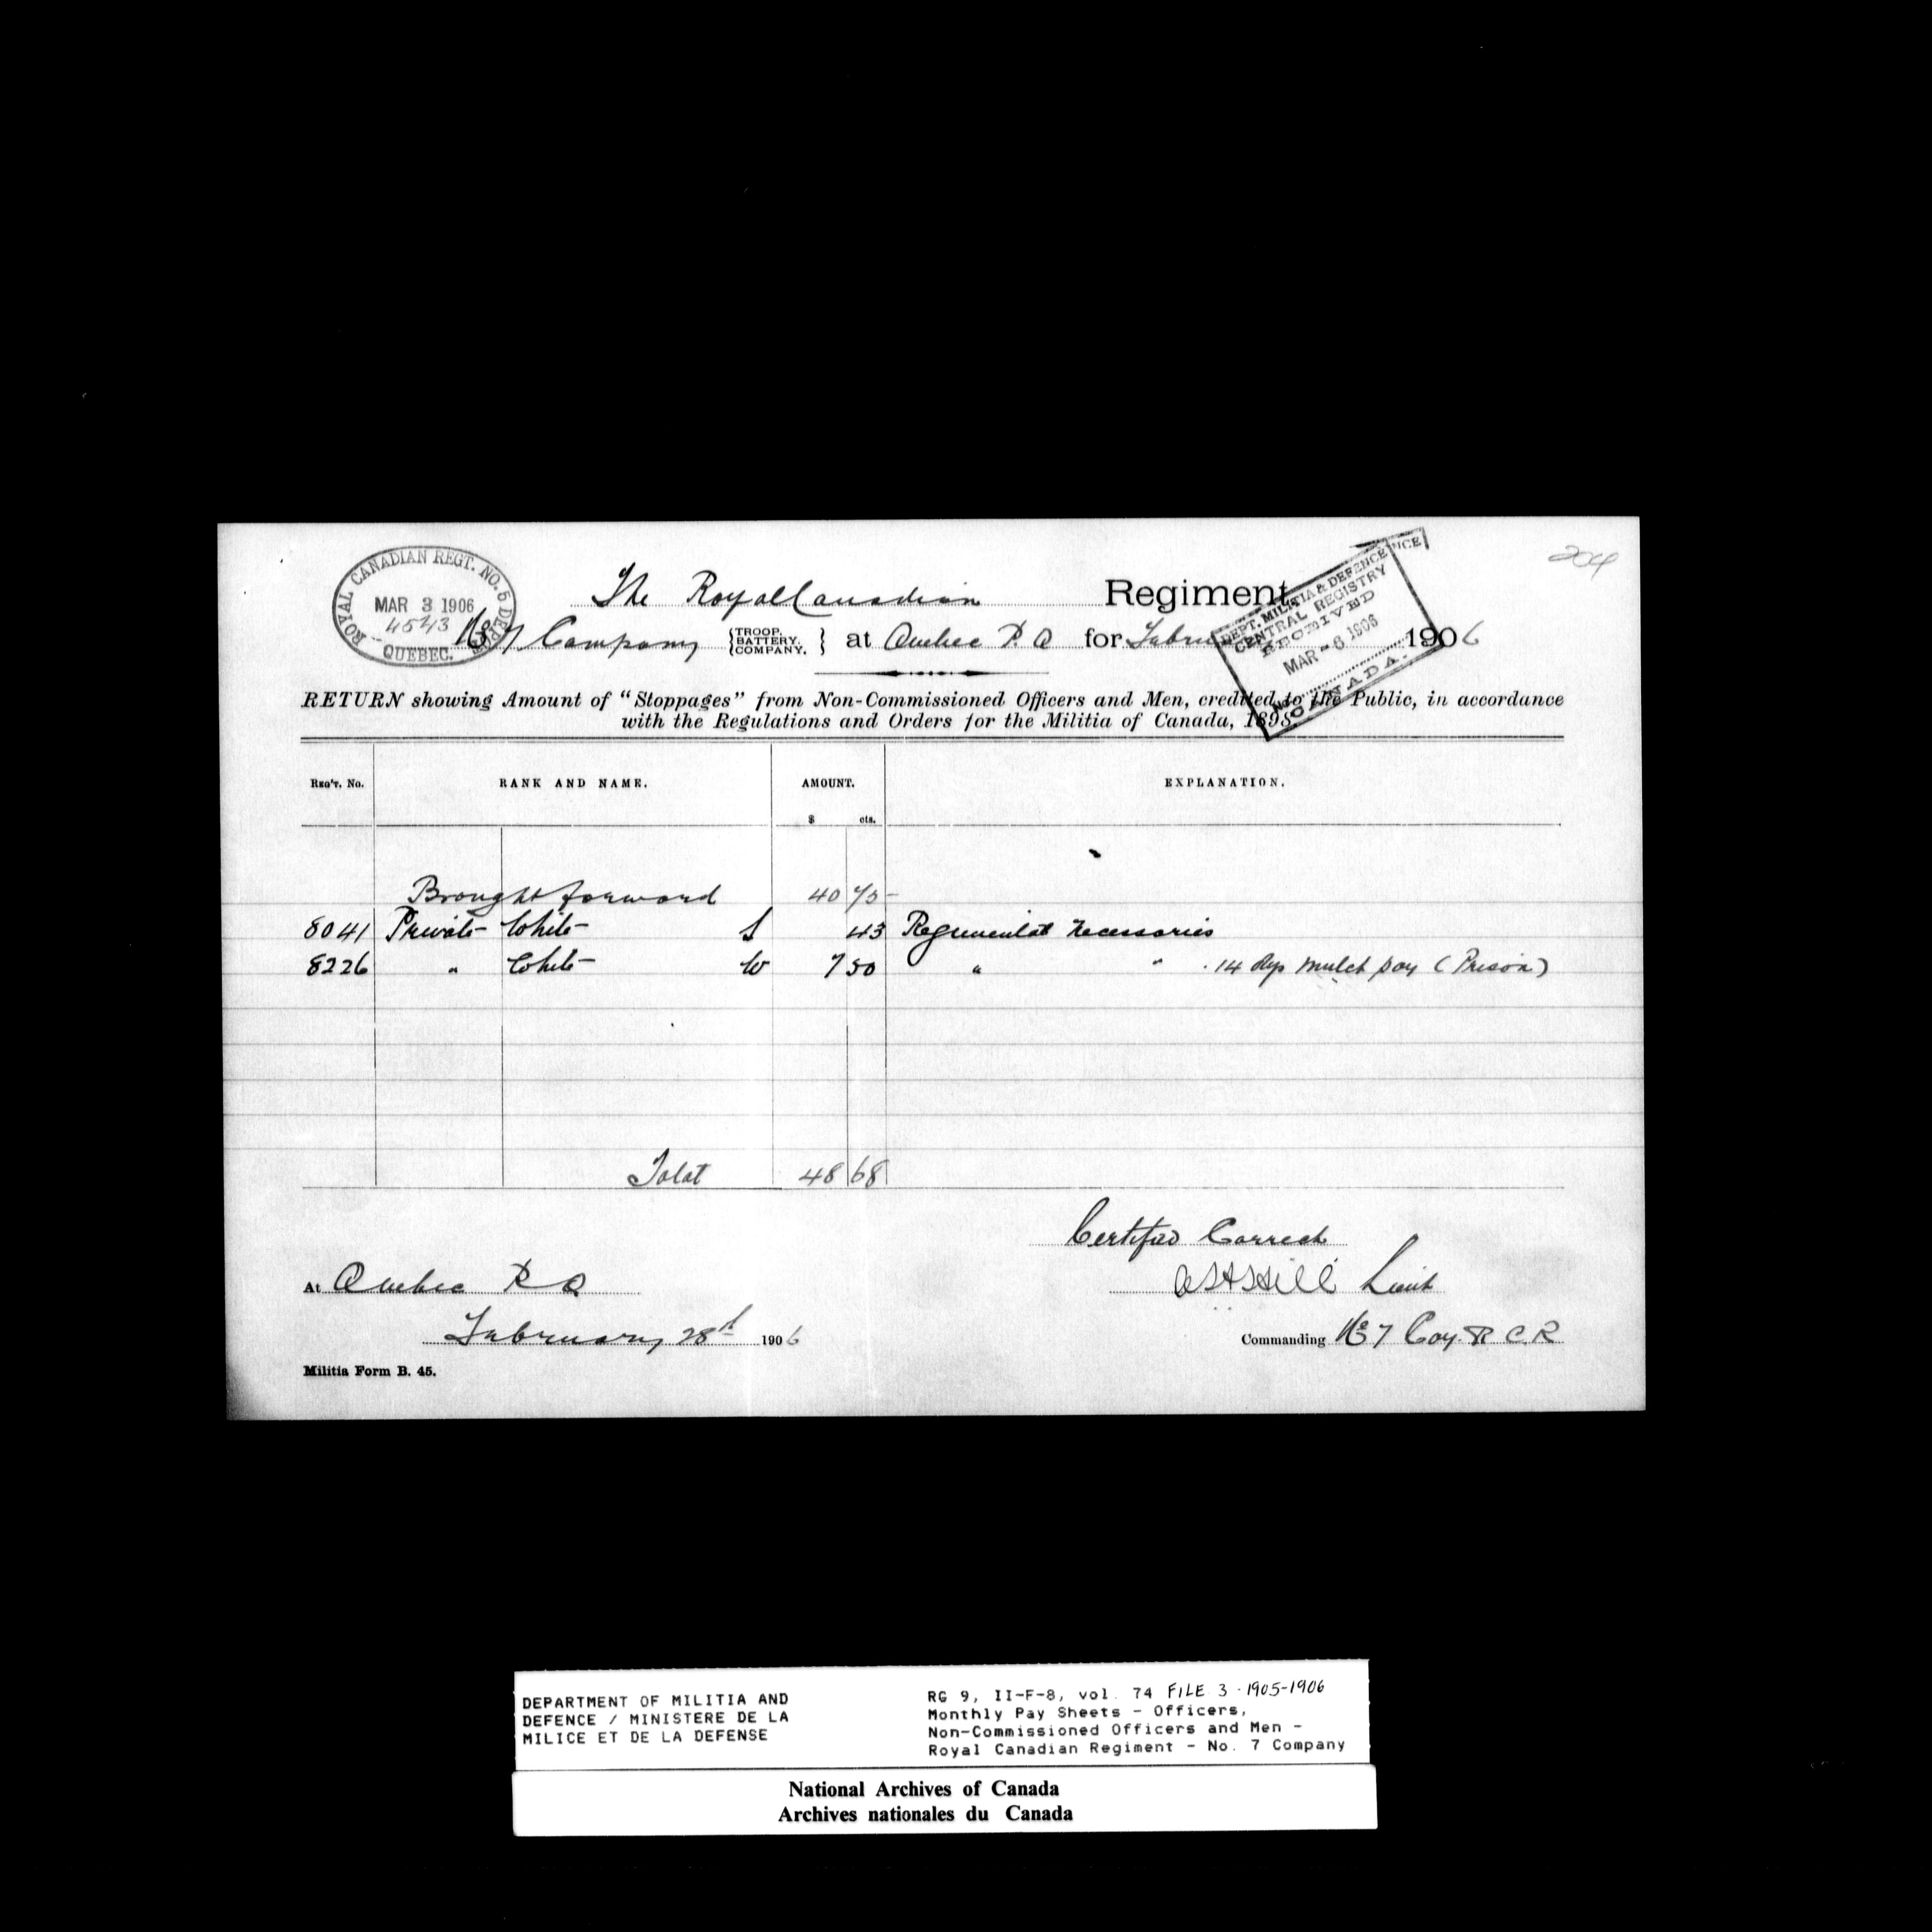 ROYAL CANADIAN REGT. NO. 5 DEPOT
MAR 3 1906
4543
QUEBEC.
204
The Royal Canadian Regiment
DEPT. MILITIA & DEFENCE
CENTRAL REGISTRY
RECEIVED
MAR - 6 1906
No.
CANADA.
No 7 Company {TROOP. BATTERY. COMPANY.} at Quebec P. Q for Febru 1906
RETURN showing Amount of "Stoppages" from Non-Commissioned Officers and Men, credited to the Public, in accordance
with the Regulations and Orders for the Militia of Canada, 1898.
REG'T. No. RANK AND NAME. AMOUNT. EXPLANATION.
$ cts.
Brought forward 40 75
8041 Private White S 43 Regimental Necessaries
8226 " White W 7 50 " " . 14 dys mulct pay (Prison)
Total 48 68
Certified Correct
At Quebec P Q
Hill Lieut
February 28th 1906
Commanding No 7 Coy. R C. R
Militia Form B. 45.
DEPARTMENT OF MILITIA AND
DEFENCE / MINISTERE DE LA
MILICE ET DE LA DEFENSE
RG 9, II-F-8, vol. 74 FILE 3 - 1905-1906
Monthly Pay Sheets - Officers,
Non-Commissioned Officers and Men -
Royal Canadian Regiment - No. 7 Company
National Archives of Canada
Archives nationales du Canada